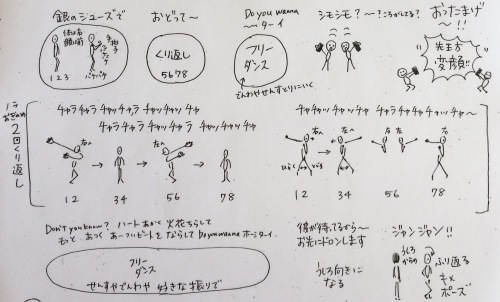 銀のシューズで
体は右
顔は前
手拍子
123
パチパチ
おどって〜
くり返し
5678
Do you wanna
〜〜ターイ
フリー
ダンス
でんわやせんすとりにいく
シモシモ?〜?ころがしてる?
おったまげ
〜!!
先生方
変顔
2回くり返し
チャラ チャラ チャッ チャラ チャッ チャッ チャ
チャラ チャラ チャッ チャラ チャッ チャッ チャ
左へ
右へ
12
34
56
78
チャチャッ チャッ チャ チャラ チャチャッ チャ〜
右へ
左へ
右
左
右へ
ひらく
とじる
12
34
56
78
Don't you know? ハートあかく 火花ちらして
もっと あつく あーついビートをならして Do you wanna ホーミタイ.
フリー
ダンス
せんすやでんわ 好きな振りで
彼が待ってるから〜
お先にドロンします
うしろ向きに
なる
ジャンジャン!!
うしろ
からの
ふり返る
キメ
ポーズ